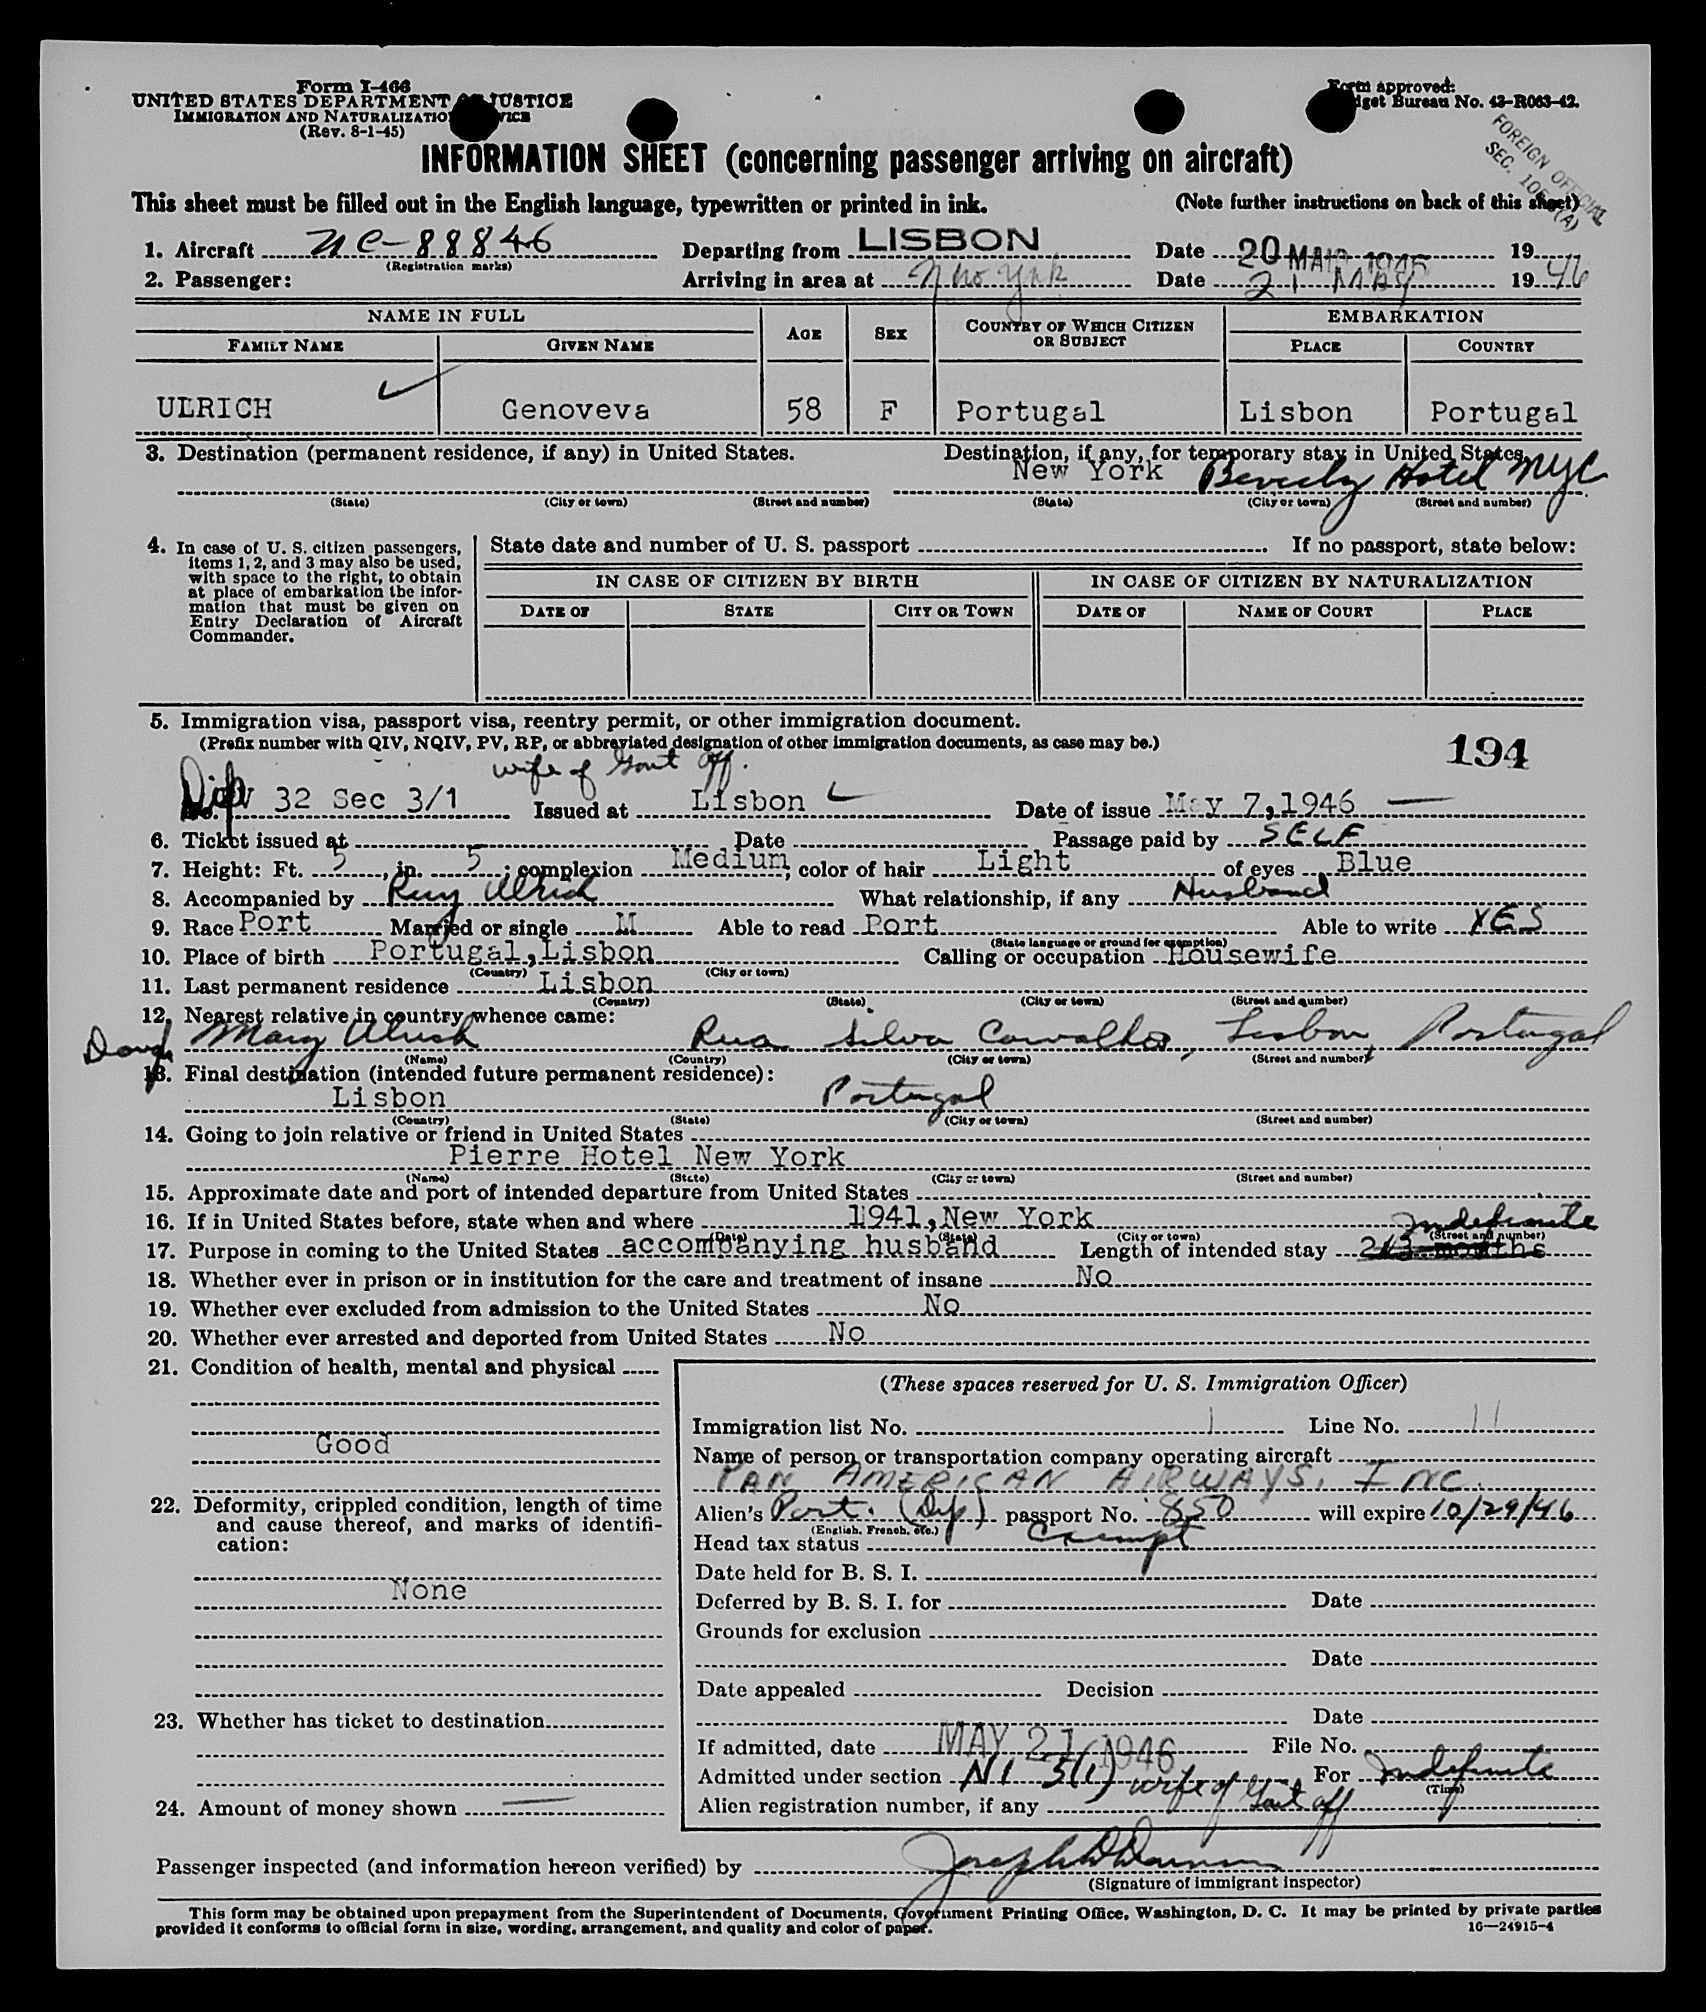 Form I-466
UNITED STATES DEPARTMENT OF JUSTICE
IMMIGRATION AND NATURALIZATION SERVICE
(Rev. 8-1-45)
Form approved:
Budget Bureau No. 43-R063-42.
FOREIGN OFFICIAL
SEC.
INFORMATION SHEET (concerning passenger arriving on aircraft)
This sheet must be filled out in the English language, typewritten or printed in ink. (Note further instructions on back of this sheet)
1. Aircraft NC-88846 Departing from LISBON Date 20 MAI 1946 19
(Registration marks)
2. Passenger: Arriving in area at New York Date 21 MAY 1946
NAME IN FULL AGE SEX COUNTRY OF WHICH CITIZEN OR SUBJECT EMBARKATION
FAMILY NAME GIVEN NAME PLACE COUNTRY
ULRICH Genoveva 58 F Portugal Lisbon Portugal
3. Destination (permanent residence, if any) in United States. Destination, if any, for temporary stay in United States.
New York Beverly Hotel NYC
(State) (City or town) (Street and number) (State) (City or town) (Street and number)
4. In case of U. S. citizen passengers, items 1, 2, and 3 may also be used, with space to the right, to obtain at place of embarkation the information that must be given on Entry Declaration of Aircraft Commander.
State date and number of U. S. passport If no passport, state below:
IN CASE OF CITIZEN BY BIRTH IN CASE OF CITIZEN BY NATURALIZATION
DATE OF STATE CITY OR TOWN DATE OF NAME OF COURT PLACE
5. Immigration visa, passport visa, reentry permit, or other immigration document.
(Prefix number with QIV, NQIV, PV, RP, or abbreviated designation of other immigration documents, as case may be.)
194
wife of Govt off.
No. Dip V 32 Sec 3/1 Issued at Lisbon Date of issue May 7, 1946
6. Ticket issued at Date Passage paid by SELF
7. Height: Ft. 5, in. 5; complexion Medium, color of hair Light of eyes Blue
8. Accompanied by Ruy Ulrich What relationship, if any Husband
9. Race Port Married or single M Able to read Port Able to write YES
(State language or ground for exemption)
10. Place of birth Portugal, Lisbon Calling or occupation Housewife
(Country) (City or town)
11. Last permanent residence Lisbon
(Country) (State) (City or town) (Street and number)
12. Nearest relative in country whence came:
Daugh Mary Ulrich Rua Silva Carvalho, Lisbon, Portugal
(Name) (Country) (City or town) (Street and number)
13. Final destination (intended future permanent residence):
Lisbon Portugal
(Country) (State) (City or town) (Street and number)
14. Going to join relative or friend in United States
Pierre Hotel New York
(Name) (State) (City or town) (Street and number)
15. Approximate date and port of intended departure from United States
16. If in United States before, state when and where 1941, New York
(Date) (State) (City or town) (Street and number)
Indefinite
17. Purpose in coming to the United States accompanying husband Length of intended stay months
18. Whether ever in prison or in institution for the care and treatment of insane No
19. Whether ever excluded from admission to the United States No
20. Whether ever arrested and deported from United States No
21. Condition of health, mental and physical
Good
22. Deformity, crippled condition, length of time and cause thereof, and marks of identification:
None
23. Whether has ticket to destination
24. Amount of money shown —
(These spaces reserved for U. S. Immigration Officer)
Immigration list No. 1 Line No. 11
Name of person or transportation company operating aircraft
PAN AMERICAN AIRWAYS, INC.
Alien's Port. (Dip) passport No. 850 will expire 10/29/46
(English, French, etc.)
Head tax status Exempt
Date held for B. S. I.
Deferred by B. S. I. for Date
Grounds for exclusion
Date
Date appealed Decision
Date
If admitted, date MAY 21 1946 File No.
Admitted under section NI 3(1) wife of Govt off For Indefinite
(Time)
Alien registration number, if any
Passenger inspected (and information hereon verified) by
(Signature of immigrant inspector)
This form may be obtained upon prepayment from the Superintendent of Documents, Government Printing Office, Washington, D. C. It may be printed by private parties
provided it conforms to official form in size, wording, arrangement, and quality and color of paper. 16—24915-4